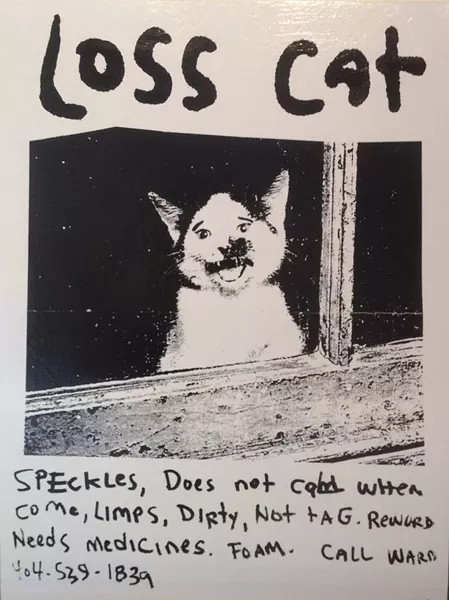 Loss cat
SPEckles, Does not when
come, Limps, Dirty, Not tAG. REWURD
Needs medicines. FOAM. CALL WARD
404-539-1839